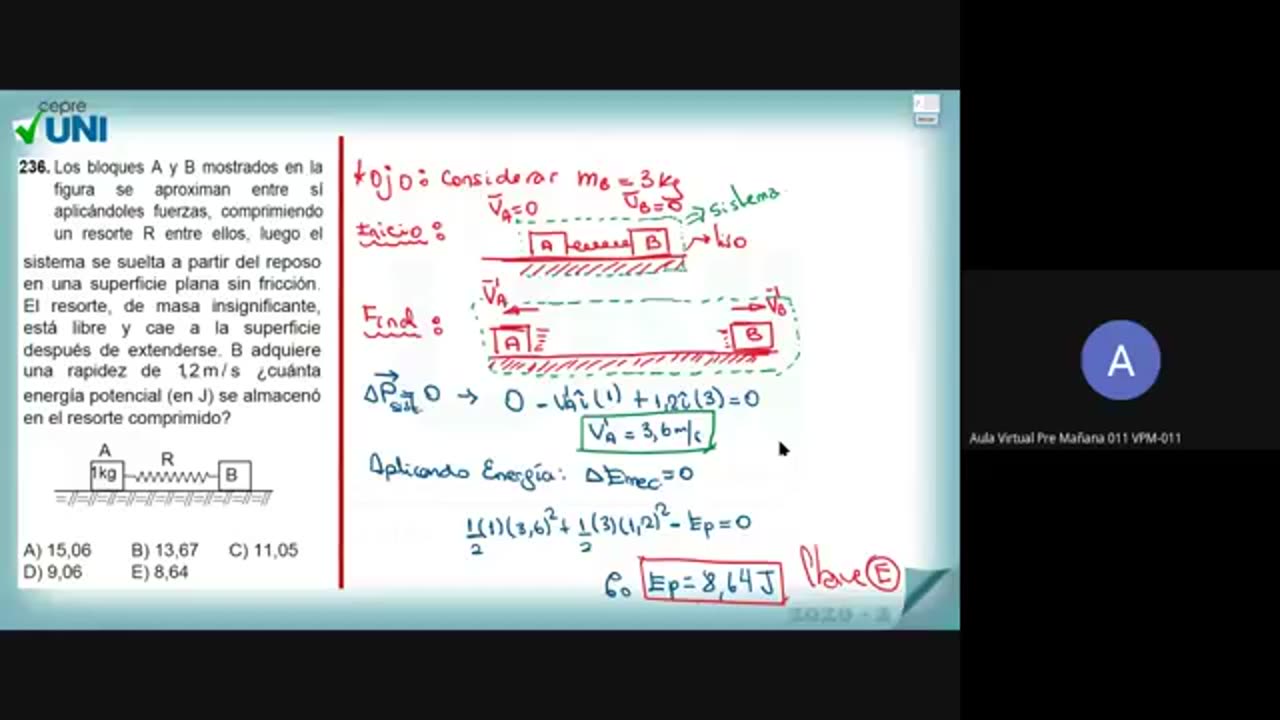 cepre
UNI
236. Los bloques A y B mostrados en la
figura se aproximan entre sí
aplicándoles fuerzas, comprimiendo
un resorte R entre ellos, luego el
sistema se suelta a partir del reposo
en una superficie plana sin fricción.
El resorte, de masa insignificante,
está libre y cae a la superficie
después de extenderse. B adquiere
una rapidez de 1,2 m/s ¿cuánta
energía potencial (en J) se almacenó
en el resorte comprimido?
A
R
1kg
B
A) 15,06 B) 13,67 C) 11,05
D) 9,06 E) 8,64
Ojo: Considerar mB = 3 kg
V̄A=0 V̄B=0
sistema
Inicio:
A B
liso
V̄'A V̄'B
Final:
A B
ΔP⃗sist = 0 → 0 - V'A î (1) + 1,2 î (3) = 0
V'A = 3,6 m/s
Aplicando Energía: ΔEmec = 0
1/2 (1)(3,6)² + 1/2 (3)(1,2)² - Ep = 0
Ep = 8,64 J
Clave E
2020 - 2
A
Aula Virtual Pre Mañana 011 VPM-011